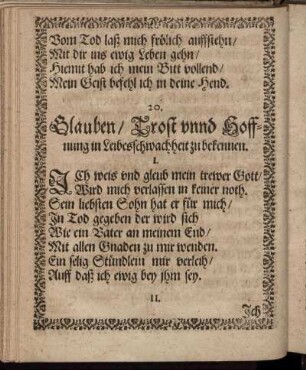 Vom Tod laß mich frölich auffstehn/
Mit dir ins ewig Leben gehn/
Hiemit hab ich mein Bitt vollend/
Mein Geist befehl ich in deine Hend.
20.
Glauben/ Trost vnnd Hoff-
nung in Leibesschwachheit zu bekennen.
I.
ICh weis vnd gleub mein trewer Gott/
Wird mich verlassen in keiner noth.
Sein liebsten Sohn hat er für mich/
In Tod gegeben der wird sich
Wie ein Vater an meinem End/
Mit allen Gnaden zu mir wenden.
Ein selig Stündlein mir verleih/
Auff daß ich ewig bey jhm sey.
II.
Ich